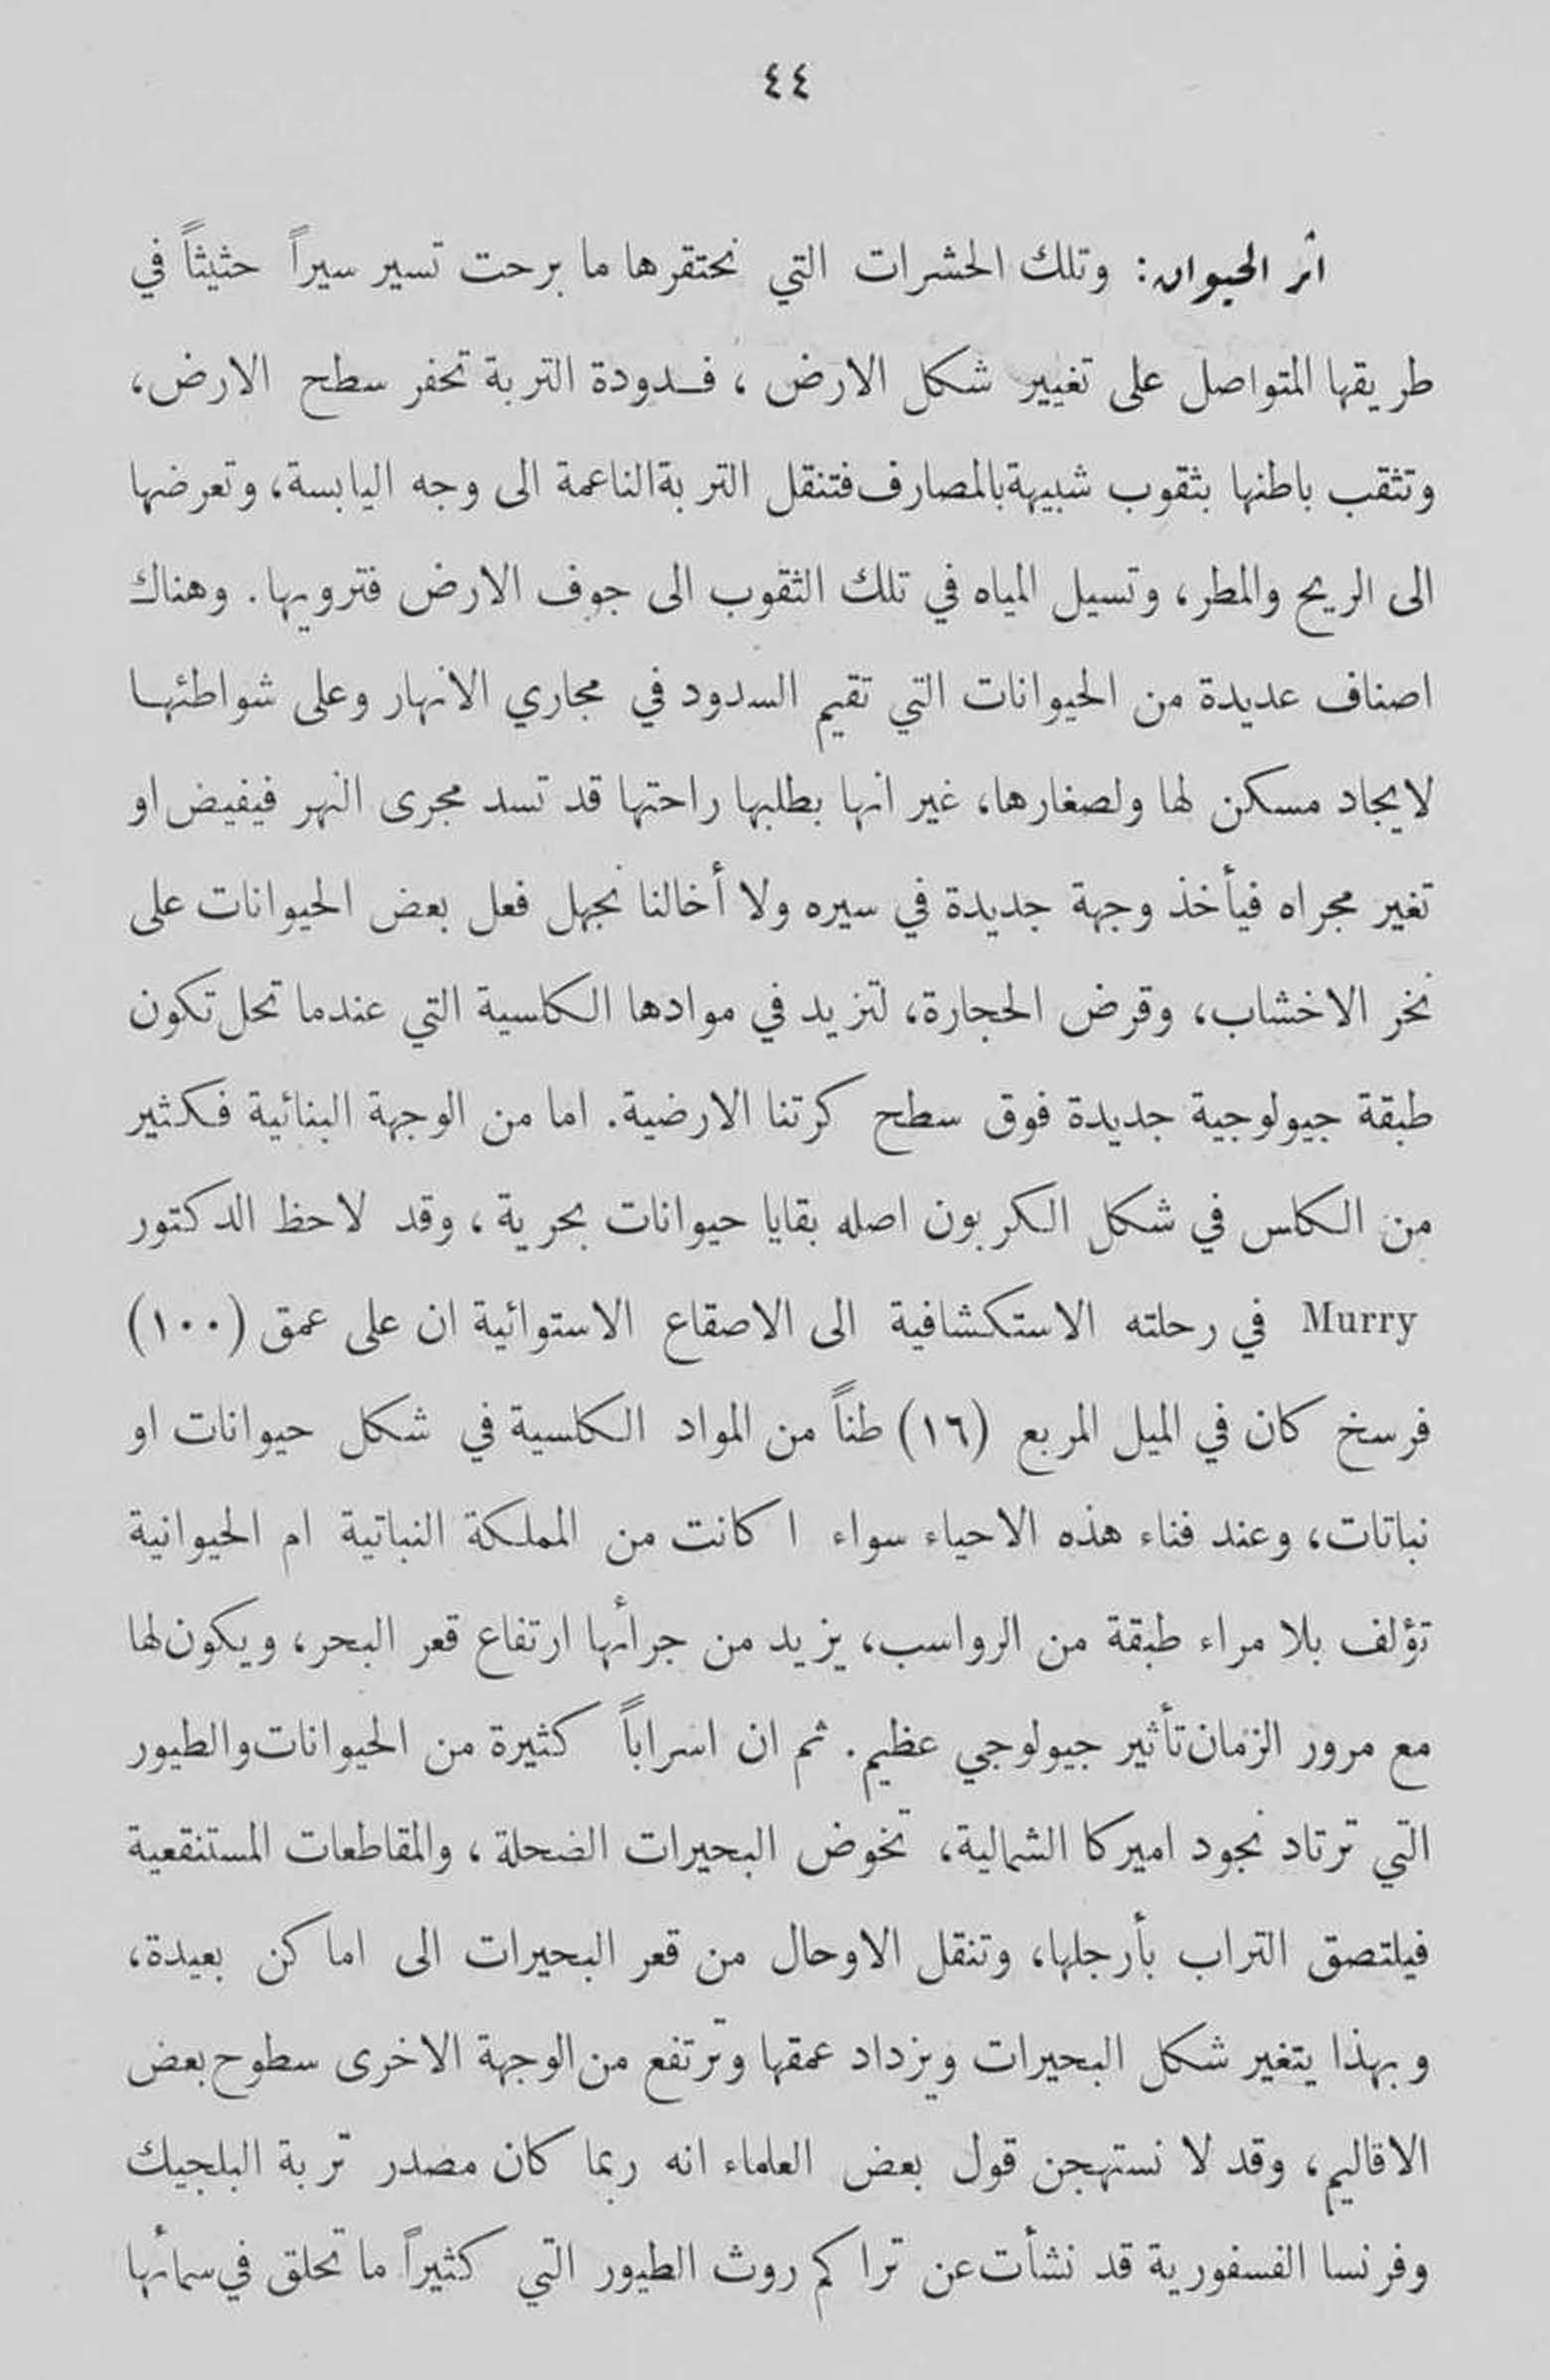 ٤٤
أثر الحيوان: وتلك الحشرات التي نحتقرها ما برحت تسير سيراً حثيثاً في
طريقها المتواصل على تغيير شكل الارض، فدودة التربة تحفر سطح الارض،
وتثقب باطنها بثقوب شبيهة بالمصارف فتنقل التربة الناعمة الى وجه اليابسة، وتعرضها
الى الريح والمطر، وتسيل المياه في تلك الثقوب الى جوف الارض فترويها. وهناك
اصناف عديدة من الحيوانات التي تقيم السدود في مجاري الانهار وعلى شواطئها
لايجاد مسكن لها ولصغارها، غير انها بطلبها راحتها قد تسد مجرى النهر فيفيض او
تغير مجراه فيأخذ وجهة جديدة في سيره ولا أخالنا نجهل فعل بعض الحيوانات على
نخر الاخشاب، وقرض الحجارة، لتزيد في موادها الكلسية التي عندما تحل تكون
طبقة جيولوجية جديدة فوق سطح كرتنا الارضية. اما من الوجهة البنائية فكثير
من الكلس في شكل الكربون اصله بقايا حيوانات بحرية، وقد لاحظ الدكتور
Murry في رحلته الاستكشافية الى الاصقاع الاستوائية ان على عمق (١٠٠)
فرسخ كان في الميل المربع (١٦) طناً من المواد الكلسية في شكل حيوانات او
نباتات، وعند فناء هذه الاحياء سواء اكانت من المملكة النباتية ام الحيوانية
تؤلف بلا مراء طبقة من الرواسب، يزيد من جرأئها ارتفاع قعر البحر، ويكون لها
مع مرور الزمان تأثير جيولوجي عظيم. ثم ان اسراباً كثيرة من الحيوانات والطيور
التي ترتاد نجود اميركا الشمالية، تخوض البحيرات الضحلة، والمقاطعات المستنقعية
فيلتصق التراب بأرجلها، وتنقل الاوحال من قعر البحيرات الى اماكن بعيدة،
وبهذا يتغير شكل البحيرات ويزداد عمقها وترتفع من الوجهة الاخرى سطوح بعض
الاقاليم، وقد لا نستهجن قول بعض العلماء انه ربما كان مصدر تربة البلجيك
وفرنسا الفسفورية قد نشأت عن تراكم روث الطيور التي كثيراً ما تحلق في سمائها